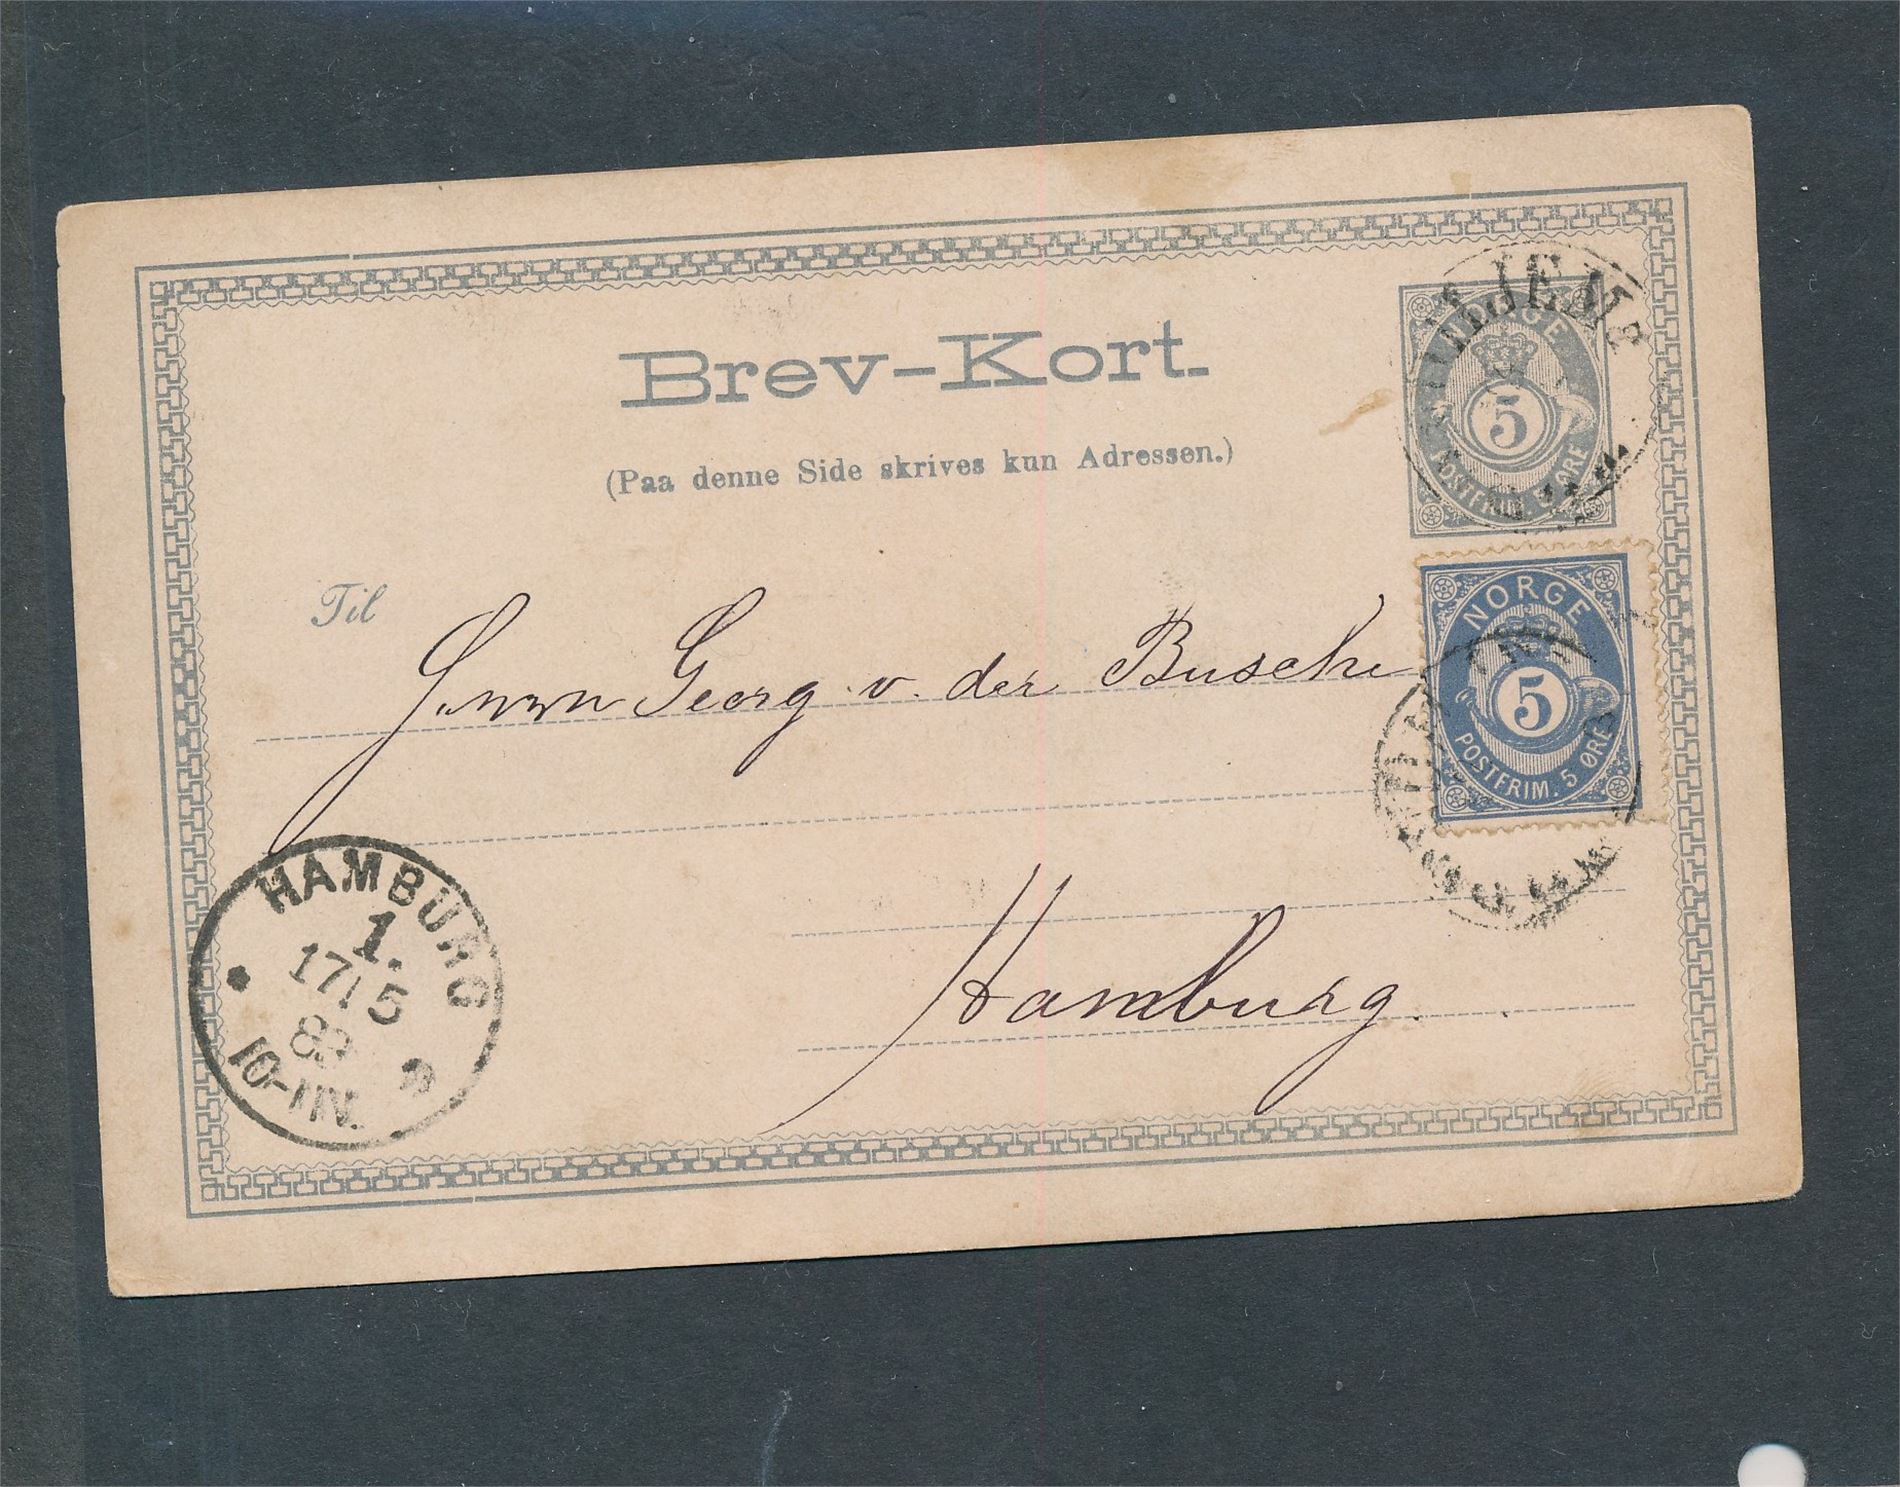 Brev-Kort.
(Paa denne Side skrives kun Adressen.)
NORGE
5
POSTFRIM. 5 ØRE
NORGE
5
POSTFRIM. 5 ØRE
Til
Herrn Georg v. der Busche
Hamburg.
HAMBURG
1.
17/5
10-11N.